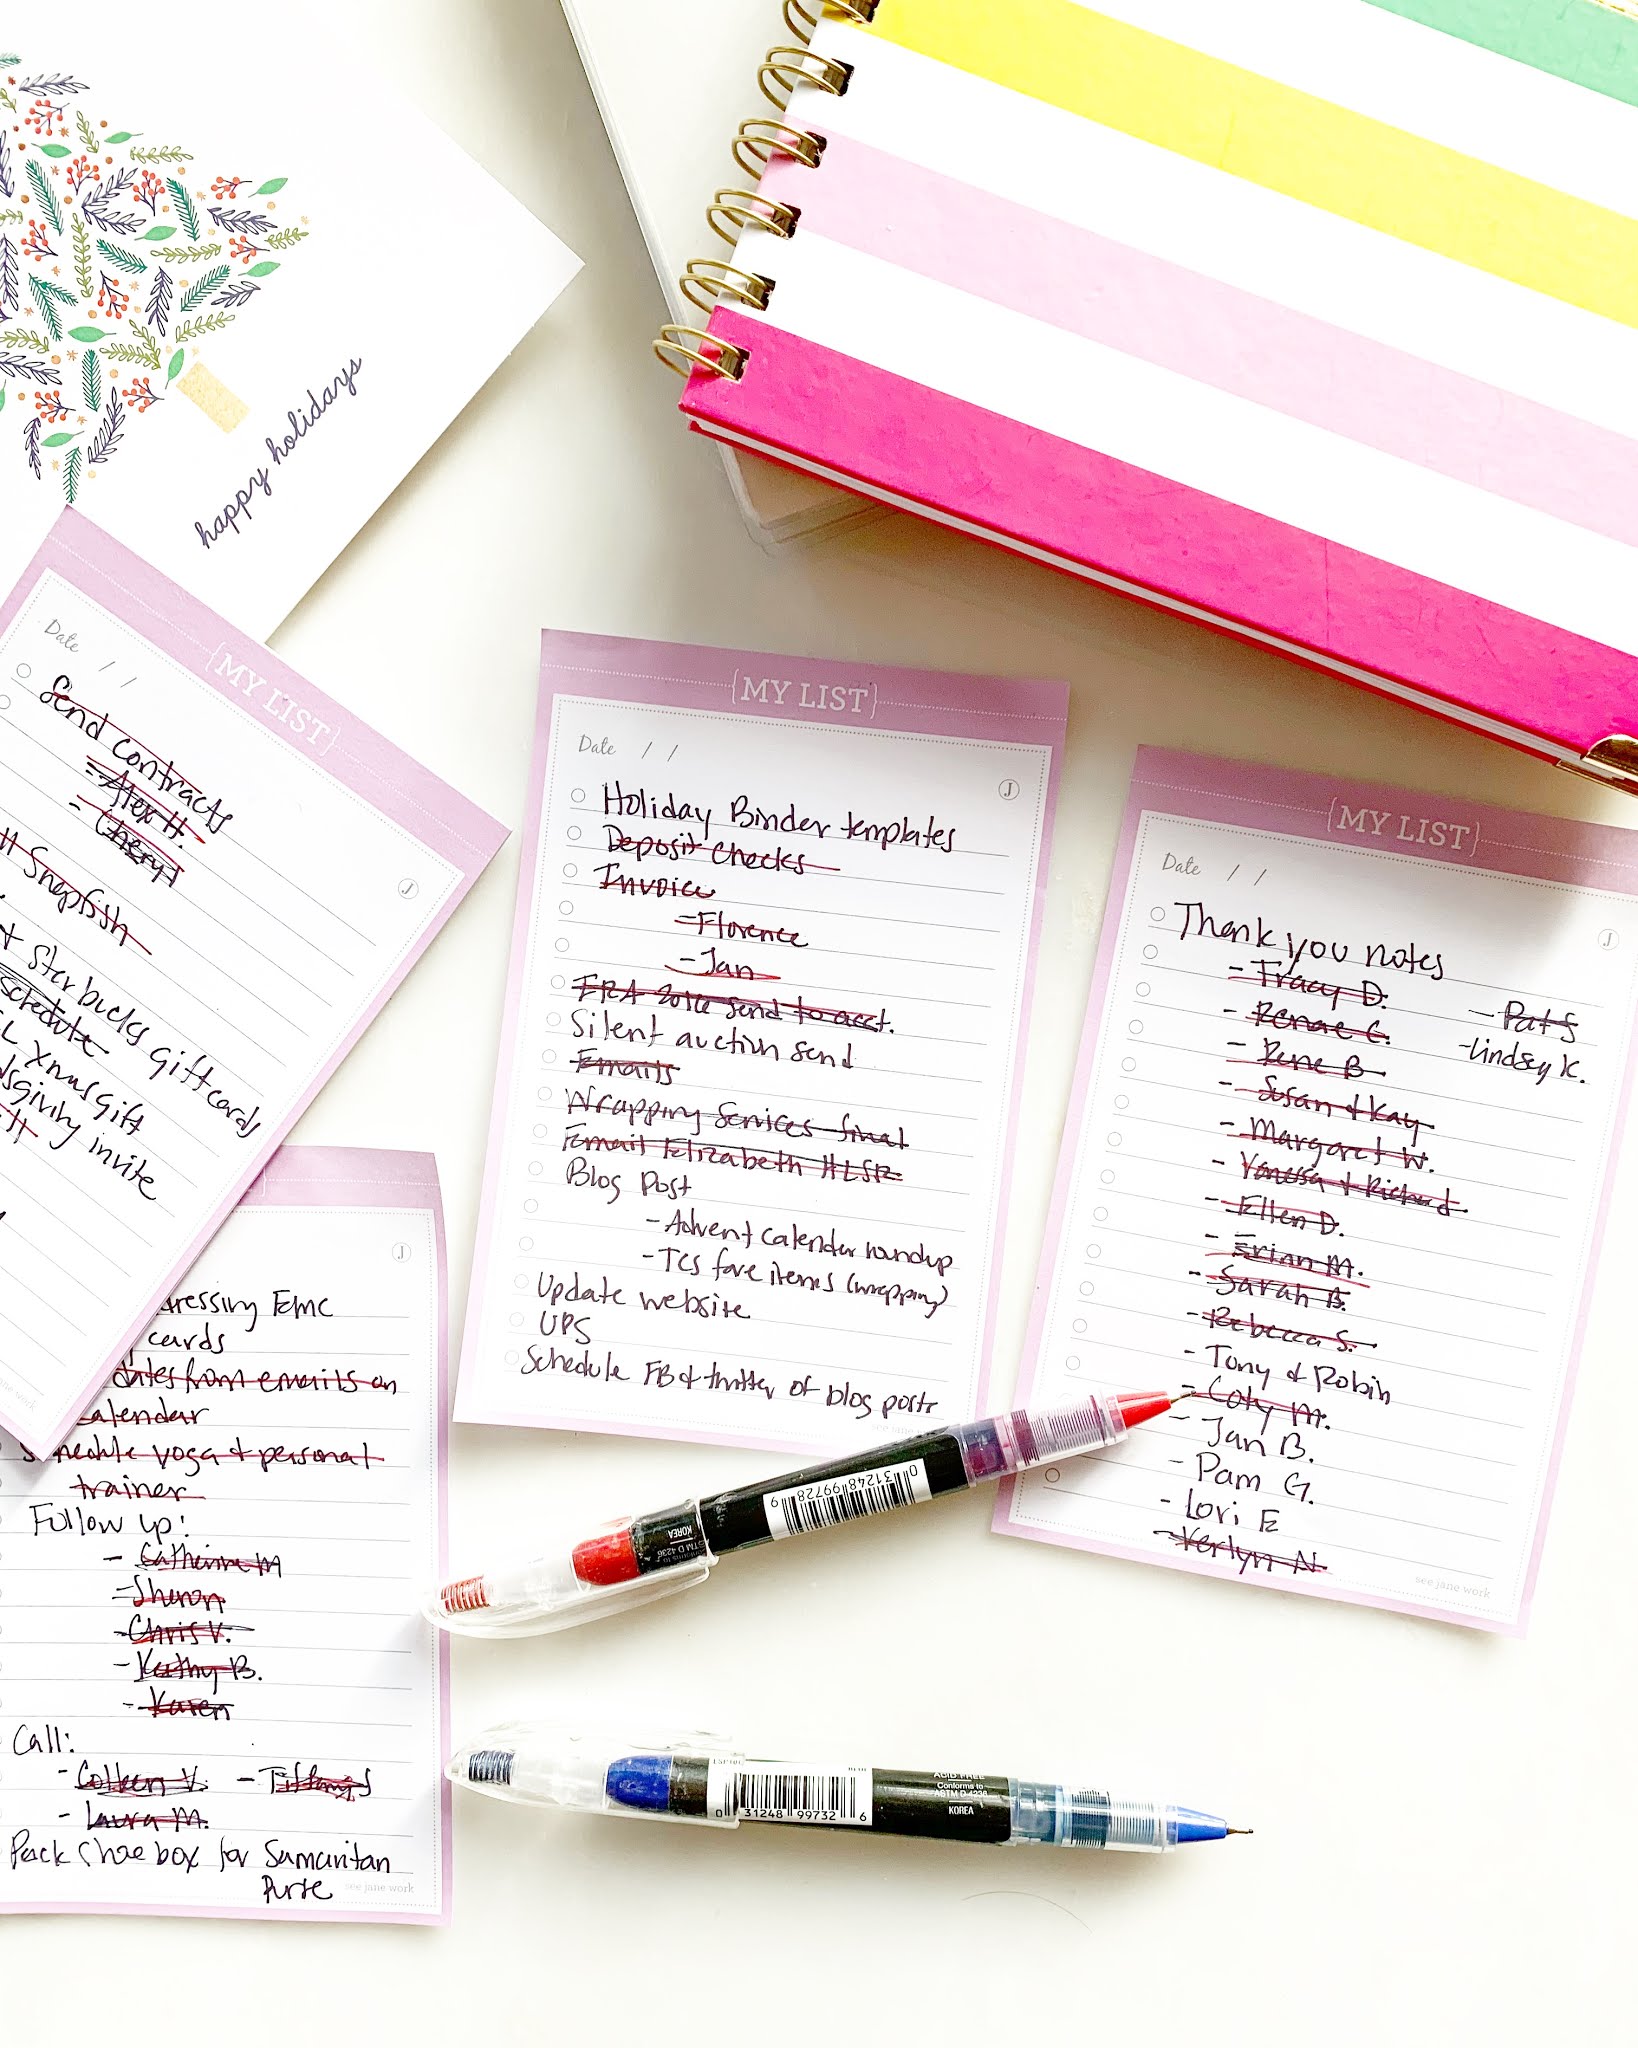 happy holidays
{MY LIST}
Date / /
J
Send Contracts
- Alex H.
- Cheryl
Snapfish
Starbucks giftcards
schedule
Xmas gift
invite
{MY LIST}
Date / /
J
Holiday Binder templates
Deposit checks
Invoice
- Florence
- Jan
send to acct.
Silent auction send
Emails
Wrapping Services final
Email Elizabeth HLSR
Blog Post
- Advent calendar roundup
- TCS fave items (wrapping)
Update website
UPS
Schedule FB & twitter of blog posts
see jane work
{MY LIST}
Date / /
J
Thank you notes
- Tracy D.
- Renae G.
- Rene B
- Susan & Kay
- Margaret W.
- Vanessa & Richard.
- Ellen D.
- Erinn M.
- Sarah B.
- Rebecca S.
- Tony & Robin
- Coty M.
- Jan B.
- Pam G.
- Lori E
- Verlyn N.
- Pat S
- Lindsey K.
see jane work
J
cards
dates from emails on
calendar
yoga & personal
trainer
Follow up:
- Catherine M
- Sharon
- Chris V.
- Kathy B.
- Karen
Call:
- Colleen V. - Tiffany S
- Laura M.
Pack Shoebox for Samaritan
Purse
see jane work
0 31248 99728 9
KOREA
ASTM D 4236
0 31248 99732 6
ACID FREE
Conforms to
ASTM D-4236
KOREA